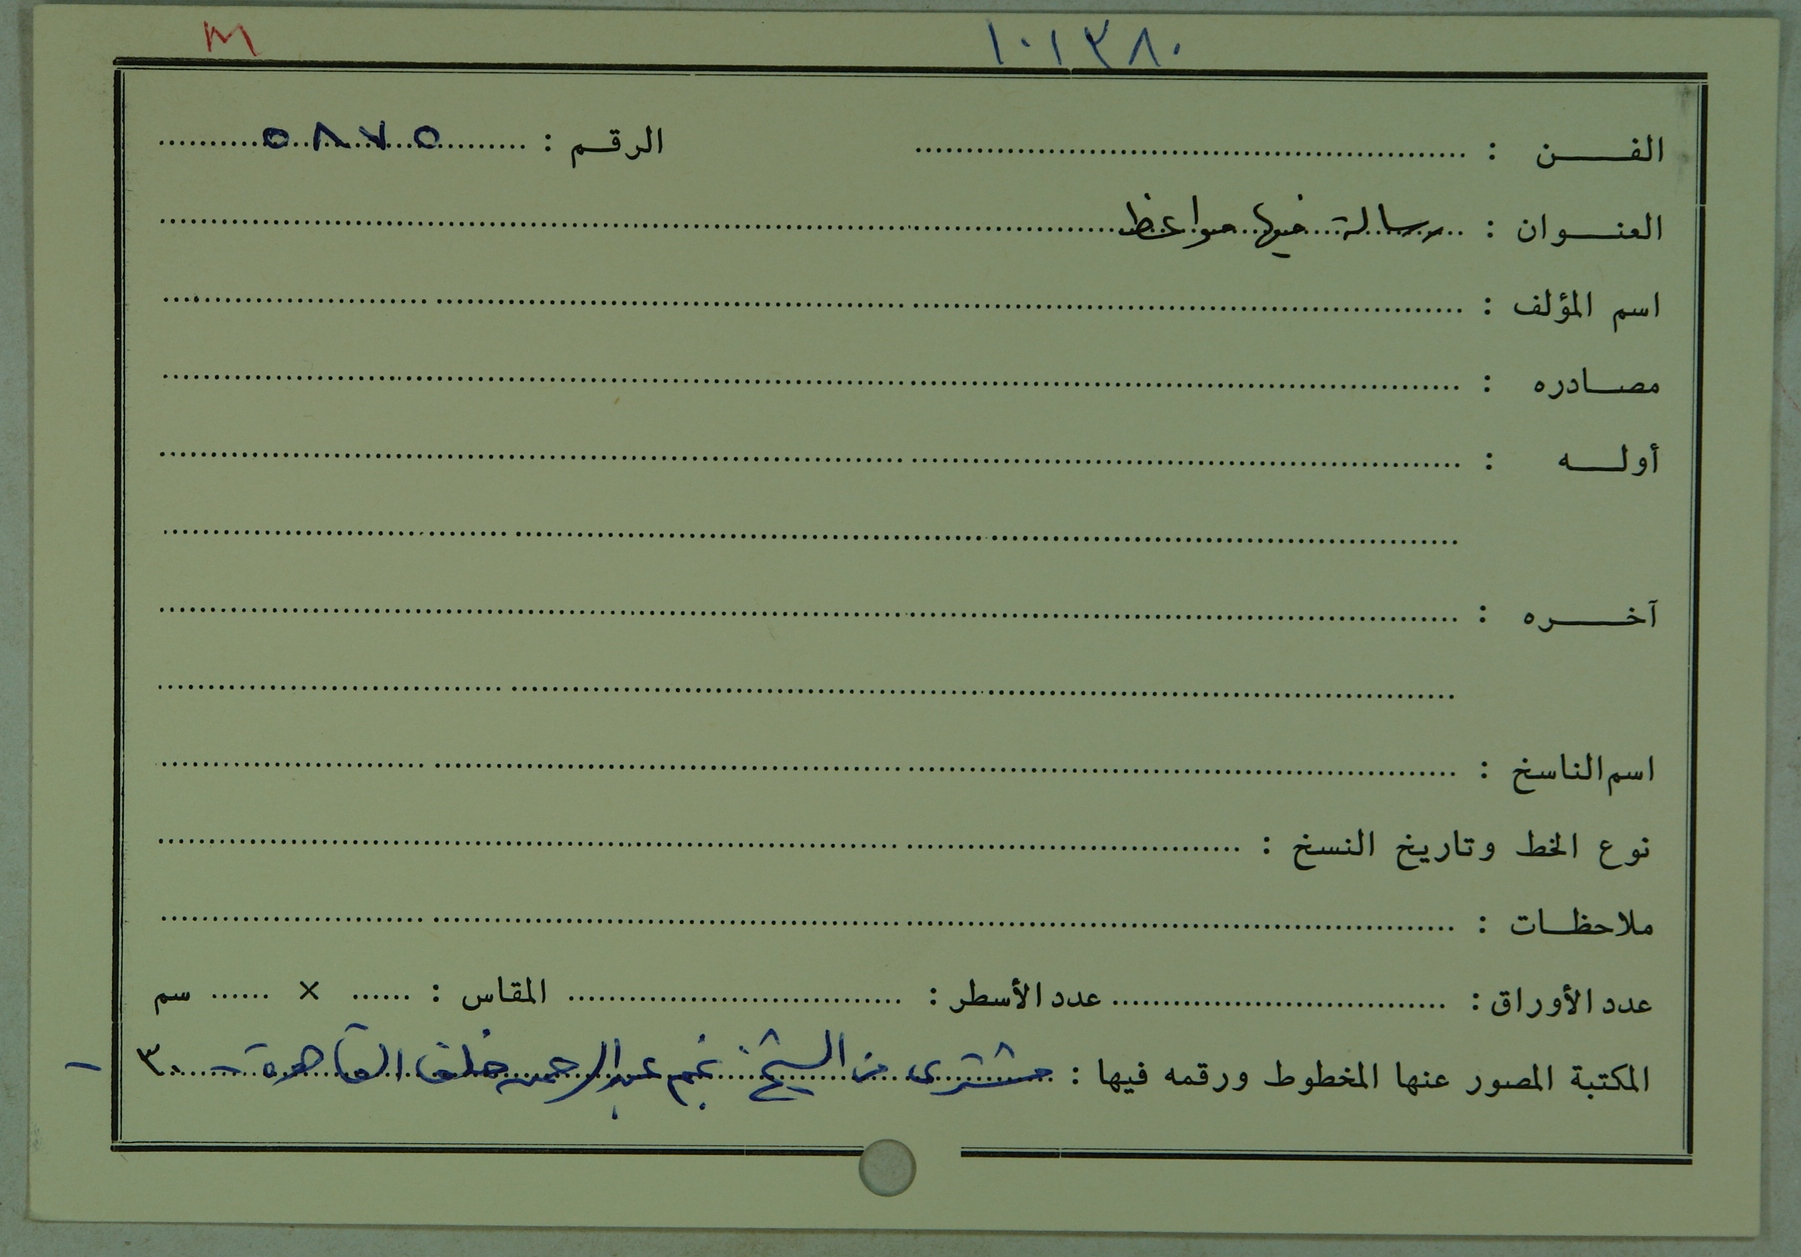 M
١٠١٣٨٠
الفن : الرقم : ٥٨٧٥
العنوان : رسالة فيها مواعظ
اسم المؤلف :
مصادره :
أوله :
آخره :
اسم الناسخ :
نوع الخط وتاريخ النسخ :
ملاحظات :
عدد الأوراق : عدد الأسطر : المقاس : × سم
المكتبة المصور عنها المخطوط ورقمه فيها : مشترى من الشيخ نجم عبدالرحمن خلف القاهرة - ٣٠ -